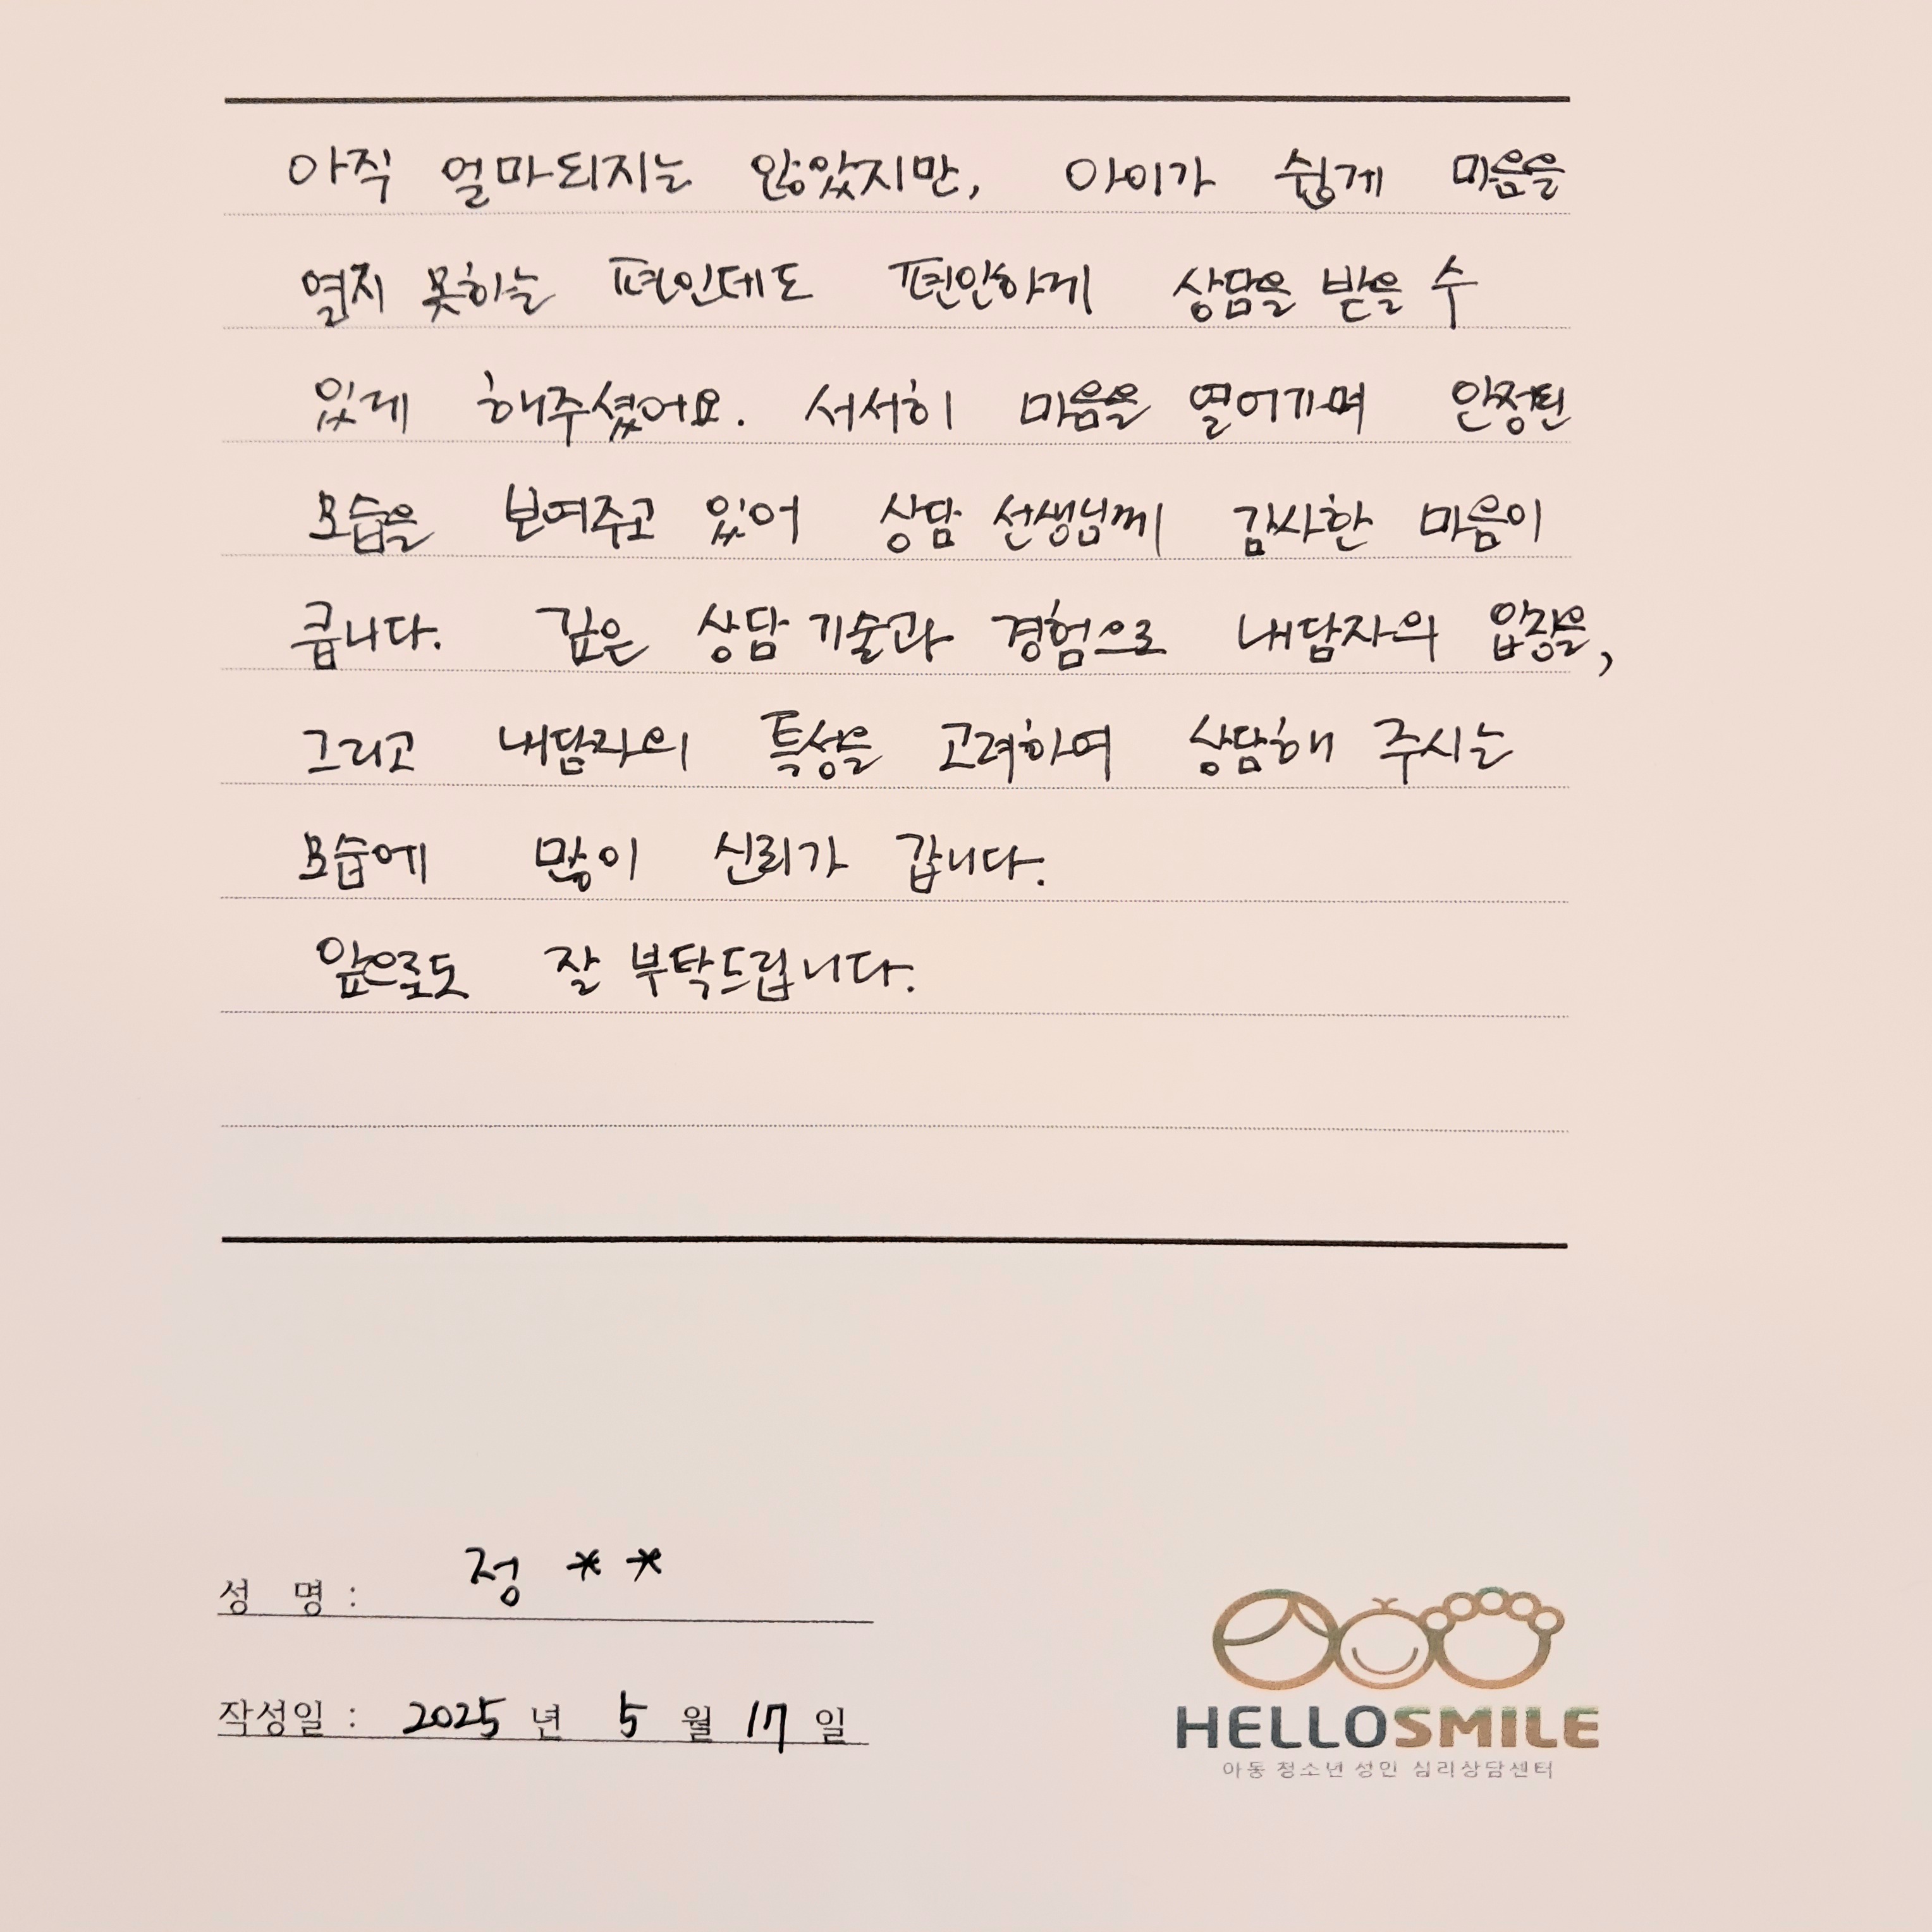 아직 얼마되지는 않았지만, 아이가 쉽게 마음을
열지 못하는 편인데도 편안하게 상담을 받을 수
있게 해주셨어요. 서서히 마음을 열어가며 안정된
모습을 보여주고 있어 상담 선생님께 감사한 마음이
큽니다. 깊은 상담 기술과 경험으로 내담자의 입장을,
그리고 내담자의 특성을 고려하여 상담해 주시는
모습에 많이 신뢰가 갑니다.
앞으로도 잘 부탁드립니다.
성 명 : 정 * *
작성일 : 2025 년 5 월 17 일
HELLOSMILE
아동 청소년 성인 심리상담센터